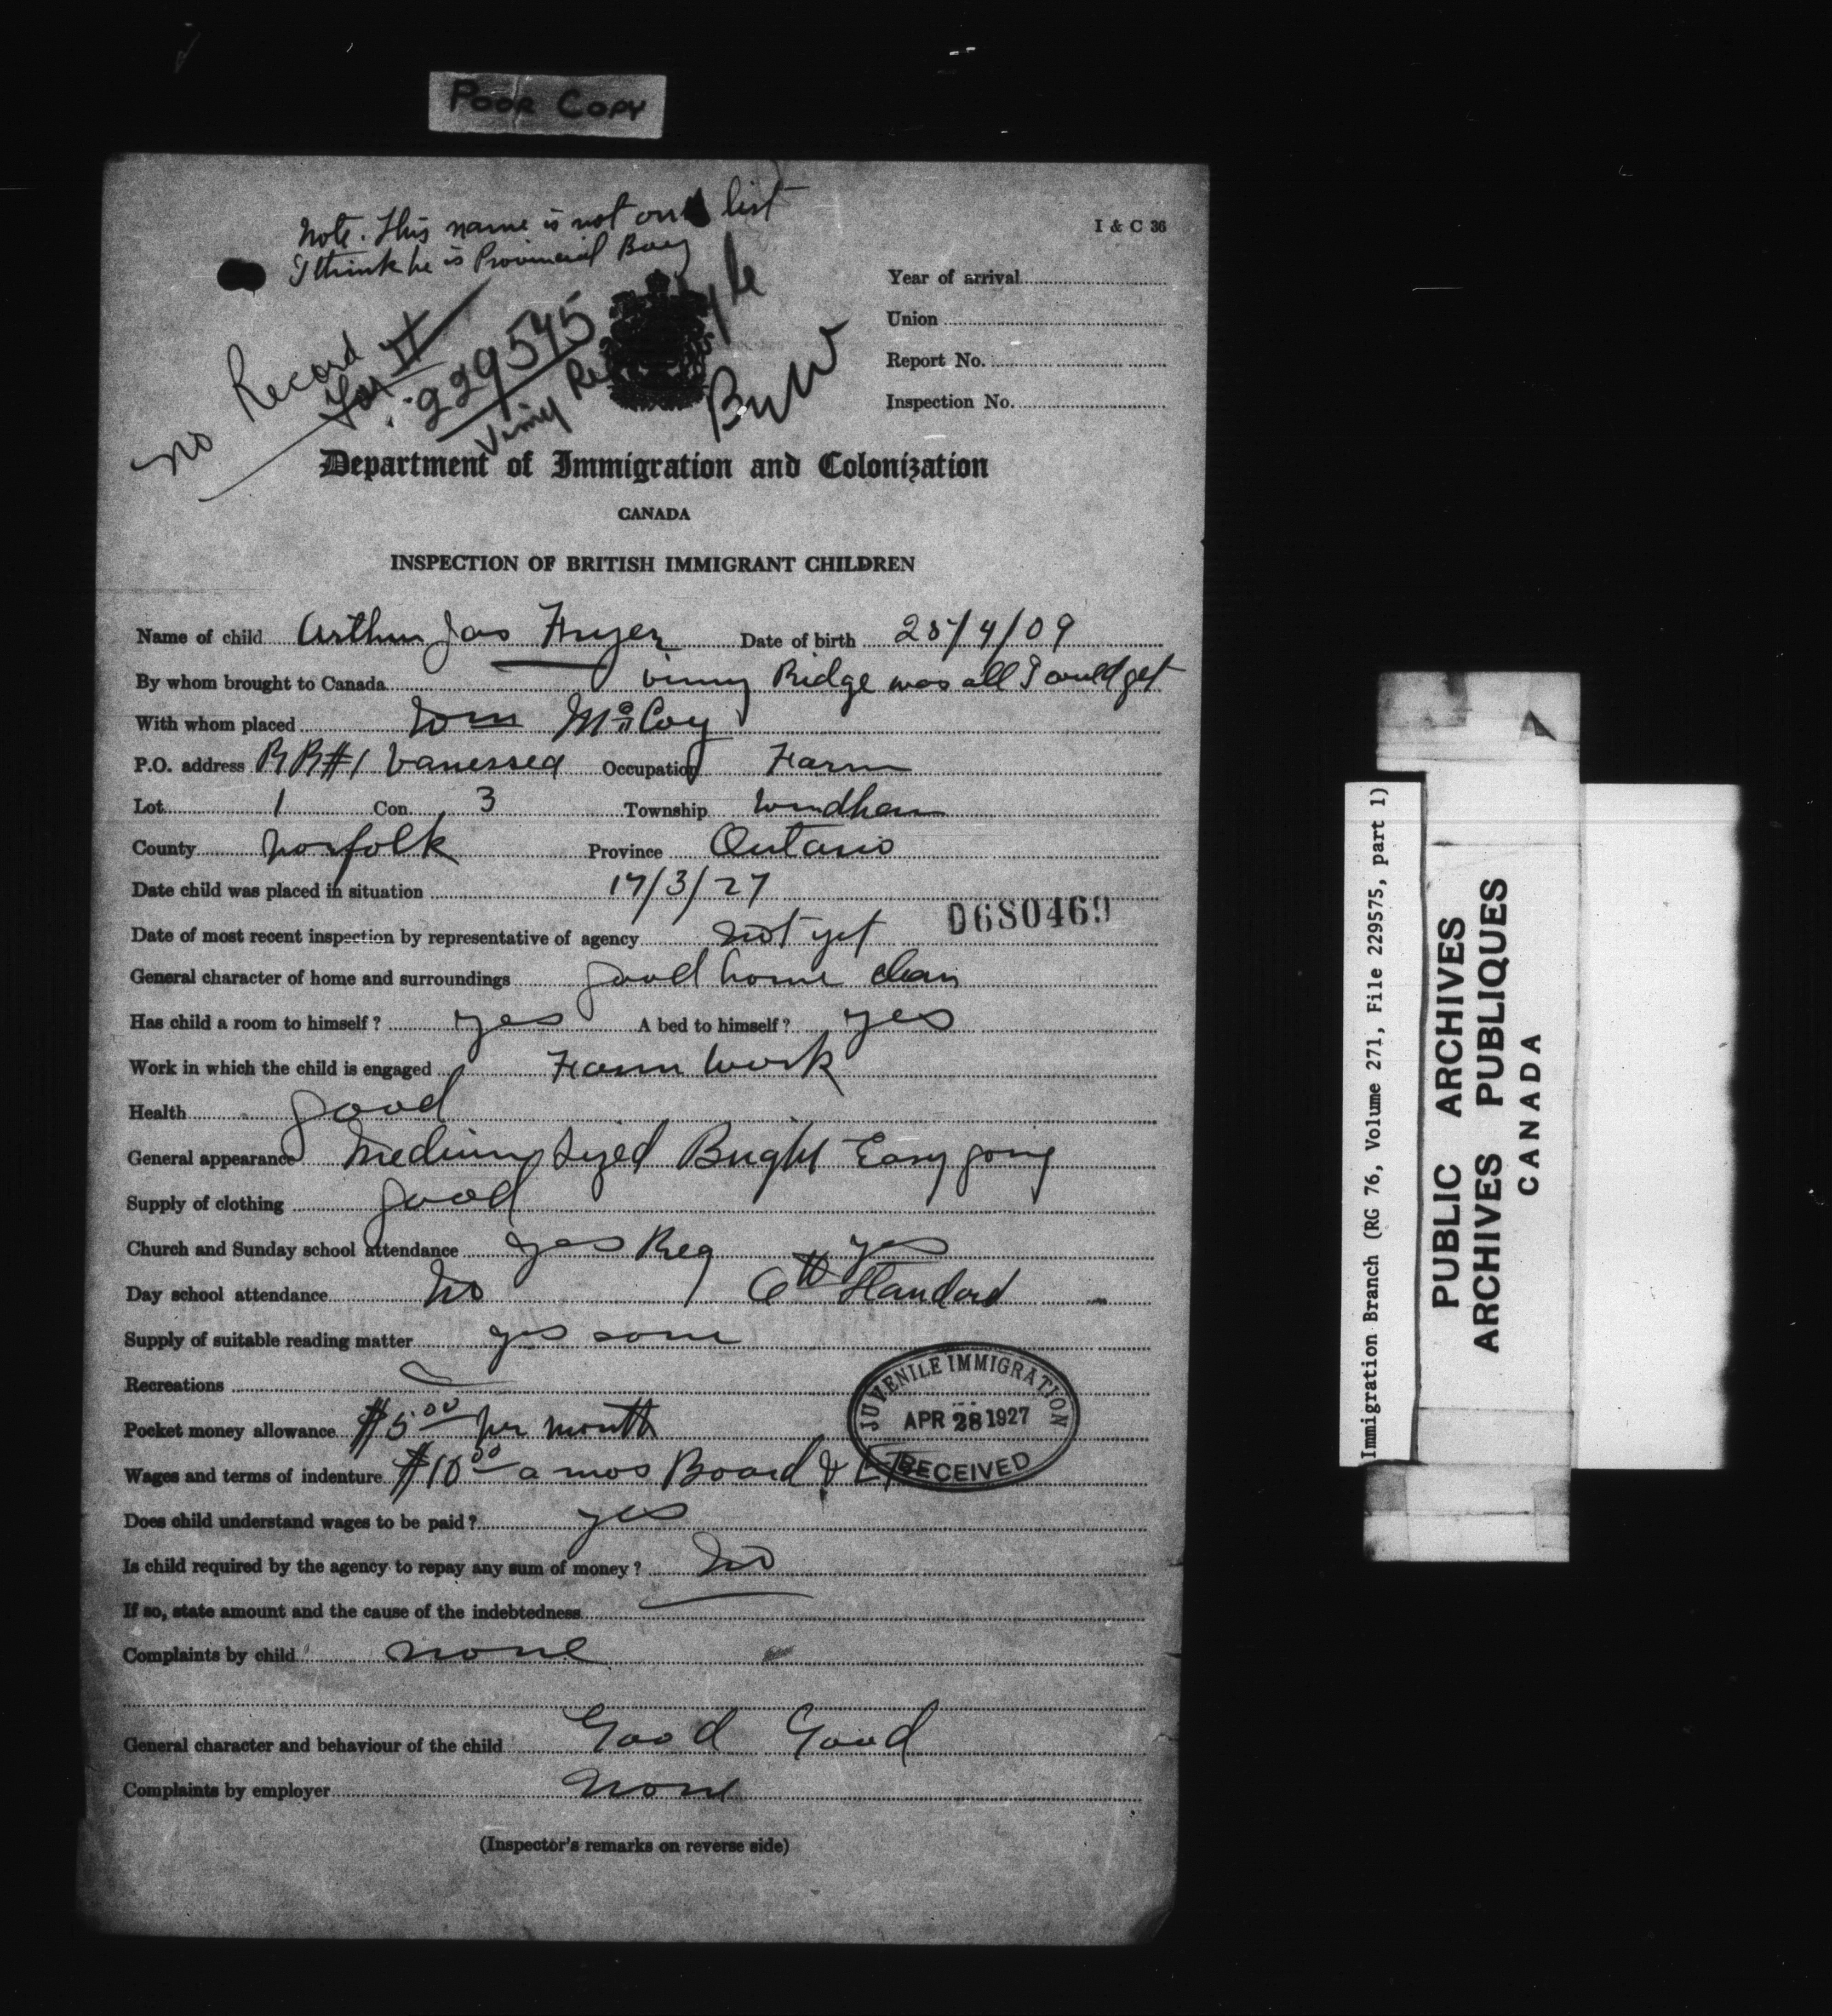 POOR COPY
Note. This name is not on list
I think he is Provincial Boy
I & C 36
Year of arrival
Union
Report No.
Inspection No.
No Record
for
229575
Vimy
Department of Immigration and Colonization
CANADA
INSPECTION OF BRITISH IMMIGRANT CHILDREN
Name of child Arthur Jas Fryer Date of birth 28/4/09
By whom brought to Canada vimy Ridge was all I could get
With whom placed Wm McCoy
P.O. address RR#1 Vanessea Occupation Farm
Lot 1 Con. 3 Township Windham
County Norfolk Province Ontario
Date child was placed in situation 17/3/27
D680469
Date of most recent inspection by representative of agency not yet
General character of home and surroundings good home clean
Has child a room to himself? yes A bed to himself? yes
Work in which the child is engaged Farm work
Health good
General appearance Medium sized Bright Easy going
Supply of clothing good
Church and Sunday school attendance yes Reg yes
Day school attendance No 6th Standard
Supply of suitable reading matter yes some
Recreations
Pocket money allowance $5.00 per month
JUVENILE IMMIGRATION
APR 28 1927
RECEIVED
Wages and terms of indenture $10.00 a mos Board &
Does child understand wages to be paid? yes
Is child required by the agency to repay any sum of money? No
If so, state amount and the cause of the indebtedness
Complaints by child none
General character and behaviour of the child Good Good
Complaints by employer none
(Inspector's remarks on reverse side)
Immigration Branch (RG 76, Volume 271, File 229575, part 1)
PUBLIC ARCHIVES
ARCHIVES PUBLIQUES
CANADA